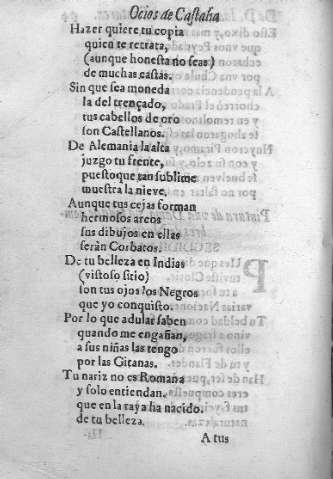 Ocios de Castalia
Hazer quiere tu copia
quien te retrata,
(aunque honesta no seas)
de muchas castas.
Sin que sea moneda
la del trençado,
tus cabellos de oro
son Castellanos.
De Alemania la alta
juzgo tu frente,
puestoque tan sublime
muestra la nieve.
Aunque tus cejas forman
hermosos arcos
sus dibujos en ellas
serân Corbatos.
De tu belleza en Indias
(vistoso sitio)
son tus ojos los Negros
que yo conquisto.
Por lo que adular saben
quando me engañan,
a sus niñas las tengo
por las Gitanas.
Tu nariz no es Romana
y solo entiendan.
que en la raya ha nacido.
de tu belleza.
A tus